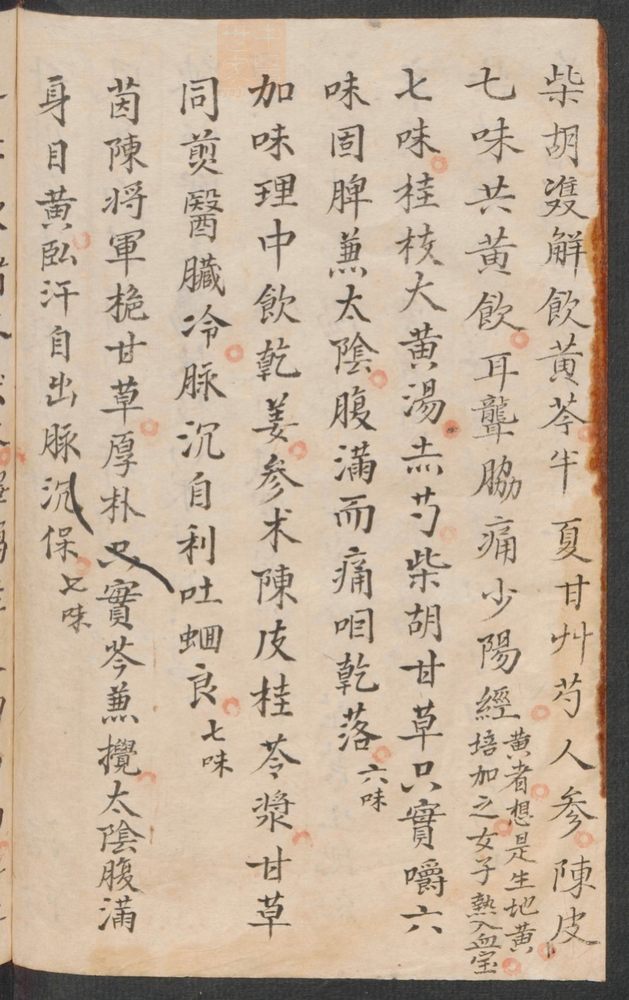 柴胡双解飲黃芩半夏甘艸芍人參陳皮
七味共黃飲耳聾脇痛少陽經黃者想是生地黃培加之女子熱入血室
七味桂枝大黃湯赤芍柴胡甘草只實嚼六
味固脾兼太陰腹滿而痛咽乾落六味
加味理中飲乾姜參朮陳皮桂苓漿甘草
同煎醫臟冷脉沉自利吐蛔良七味
茵陳將軍梔甘草厚朴只實芩兼攪太陰腹滿
身目黃臥汗自出脉沉保七味